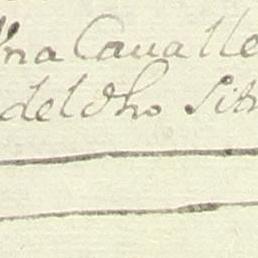 Una Cavalle
del dho Siti